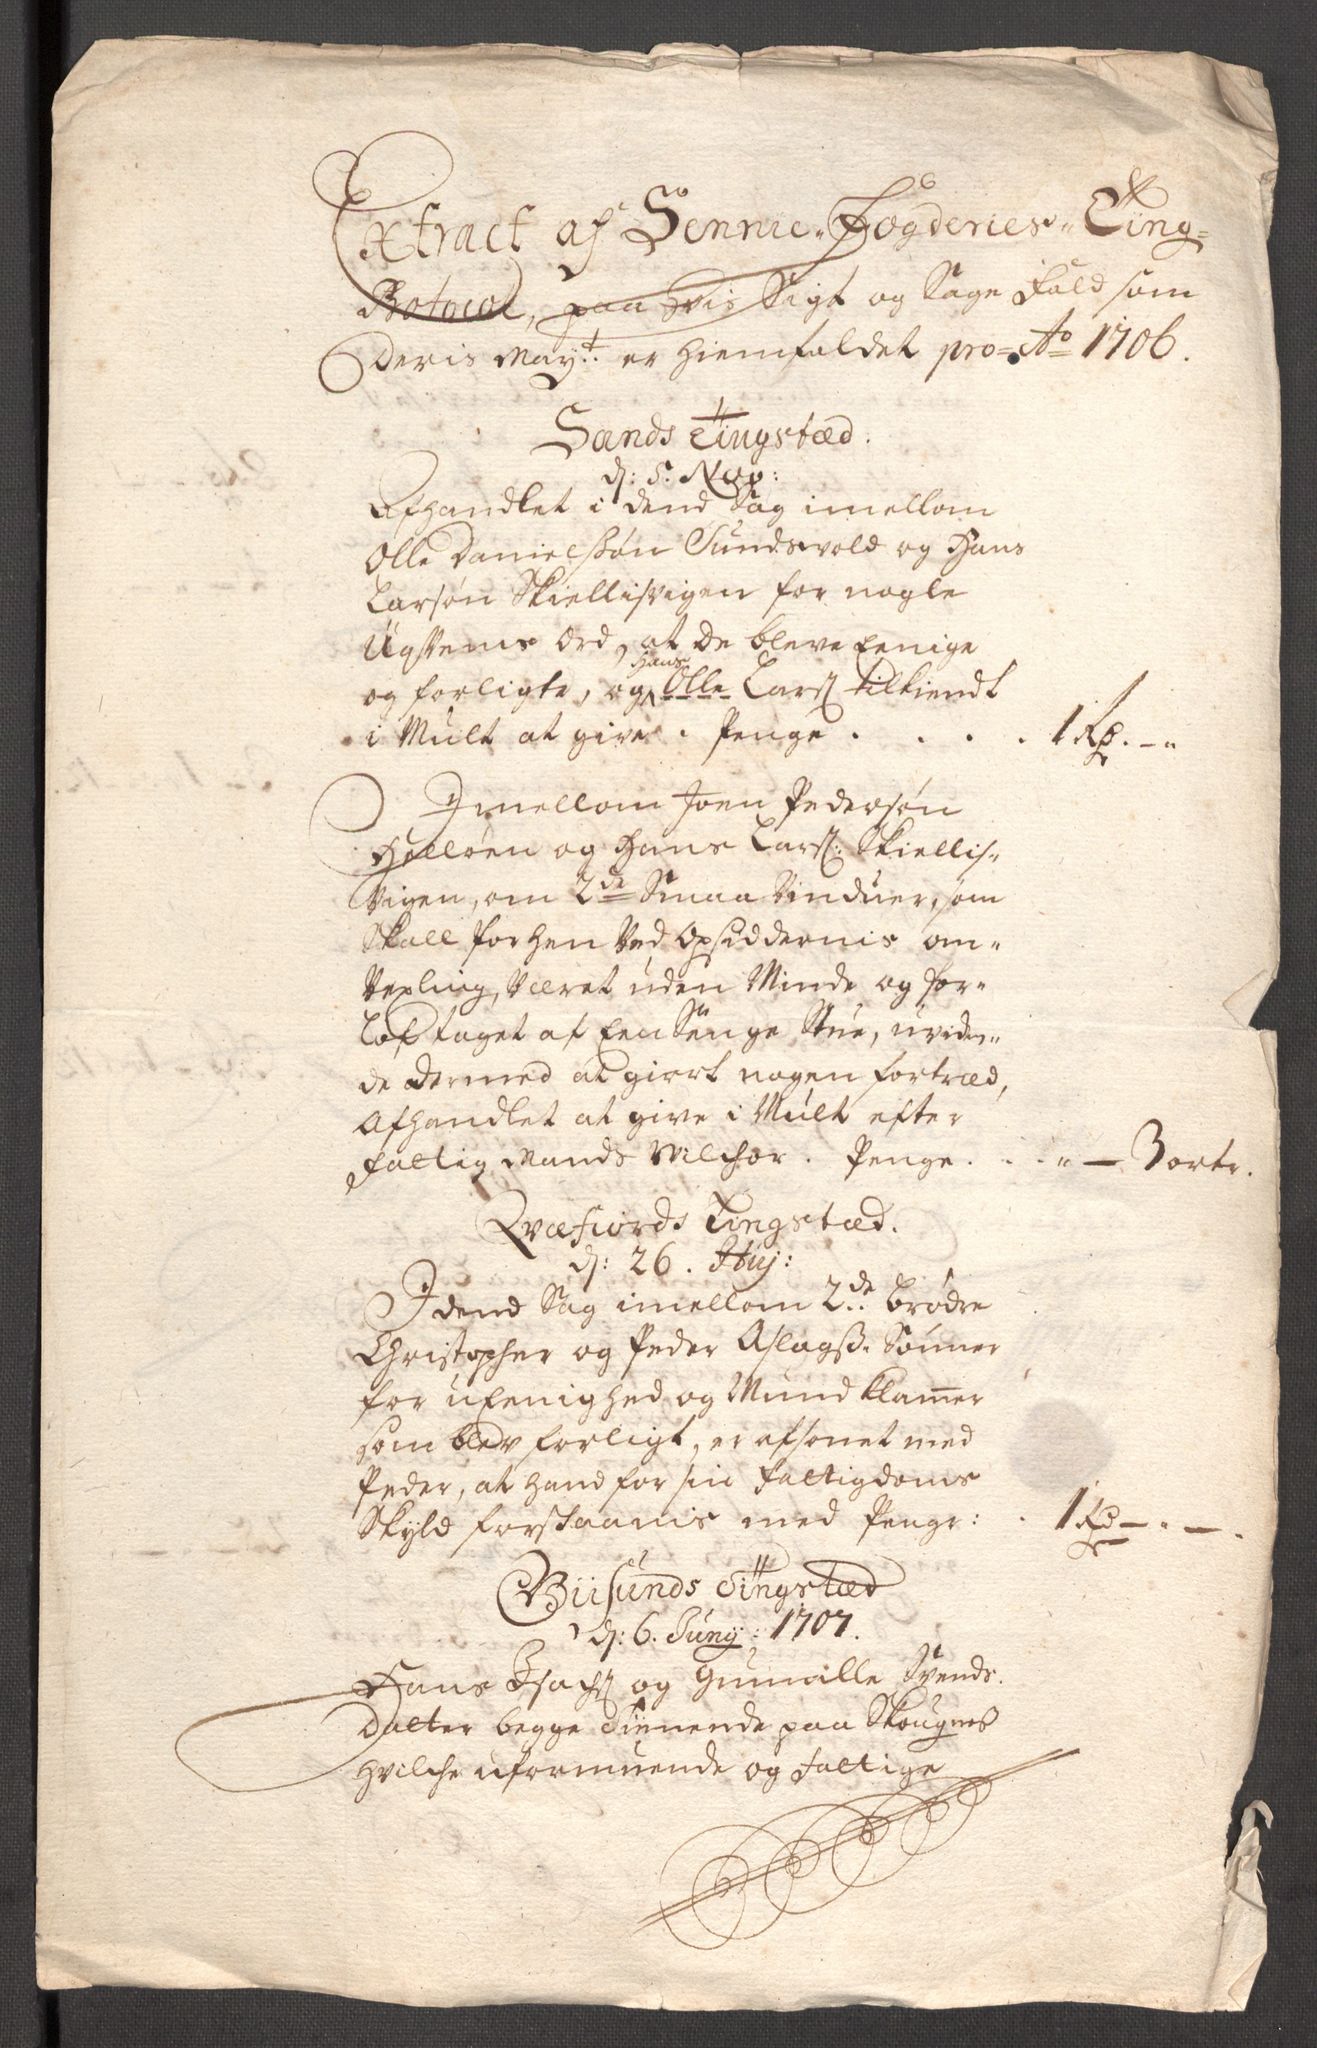 Extract af Sennie-Fogderies-Ting=
Protocol, paa hvis Sigt og Sage Fald som
Deris Mayt: er hiemfaldet pro= Ao 1706.
Sands Tingstæd.
d: 5. Nov:
Afhandlet i dend Sag imellom
Olle Danielssøn Sundsvold og Hans
Larsøn Skiellisvigen for nogle
Uqvems Ord, at de bleve Eenige
og forligte, og Hans Olle Lars: tilkiendt
i Mult at give . Penge . . . . 1 Rd. - "
Imellom Joen Pedersøn
Helløen og Hans Lars: Skiellis-
vigen, om 2de Smaa Vinduer, som
Skall forhen Ved Opsiddernis om-
Vexling, Været uden Minde og for-
lof taget af Een Senge Stue, uviden-
de dermed at giort nogen fortræd,
Afhandlet at give i Mult efter
fattig Mands Vilchor . Penge . . . " — 3 ortr.
Qvæfiords Tingstæd.
d: 26. Huj:
I dend Sag imellom 2de: brødre
Christopher og Peder Aslagss: Sønner
for uEenighed og Mund klamer
som blev forligt, er afsonet med
Peder, at hand for sin Fattigdoms
Skyld forskaanis med Penge: . 1 Rd — . — .
Giisunds Tingstæd
d: 6. Juny: 1707.
Hans Isachs: og Gumaille Svends.
Datter begge Tiienende paa Skougnes
hvilche uformuende og fattige